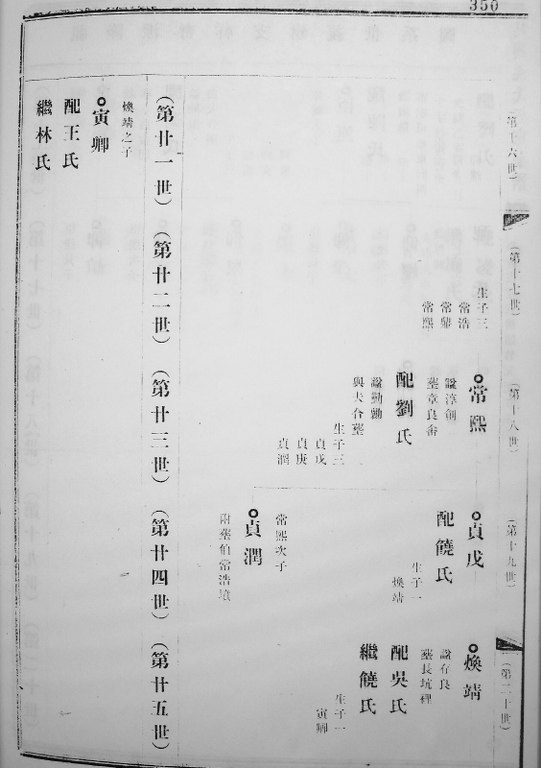 350
第十六世)
(第十七世)
(第十八世)
(第十九世)
(第二十世)
生子三
常浩
常鼐
常熙
常熙
諡淳創
葬章良畬
配劉氏
諡勤勷
與夫合葬
生子三
貞戊
貞庚
貞潤
貞戊
配饒氏
生子一
煥靖
常熙次子
貞潤
附葬伯常浩墳
煥靖
諡存良
葬長坑裡
配吳氏
繼饒氏
生子一
寅卿
(第廿一世)
(第廿二世)
(第廿三世)
(第廿四世)
(第廿五世)
煥靖之子
寅卿
配王氏
繼林氏